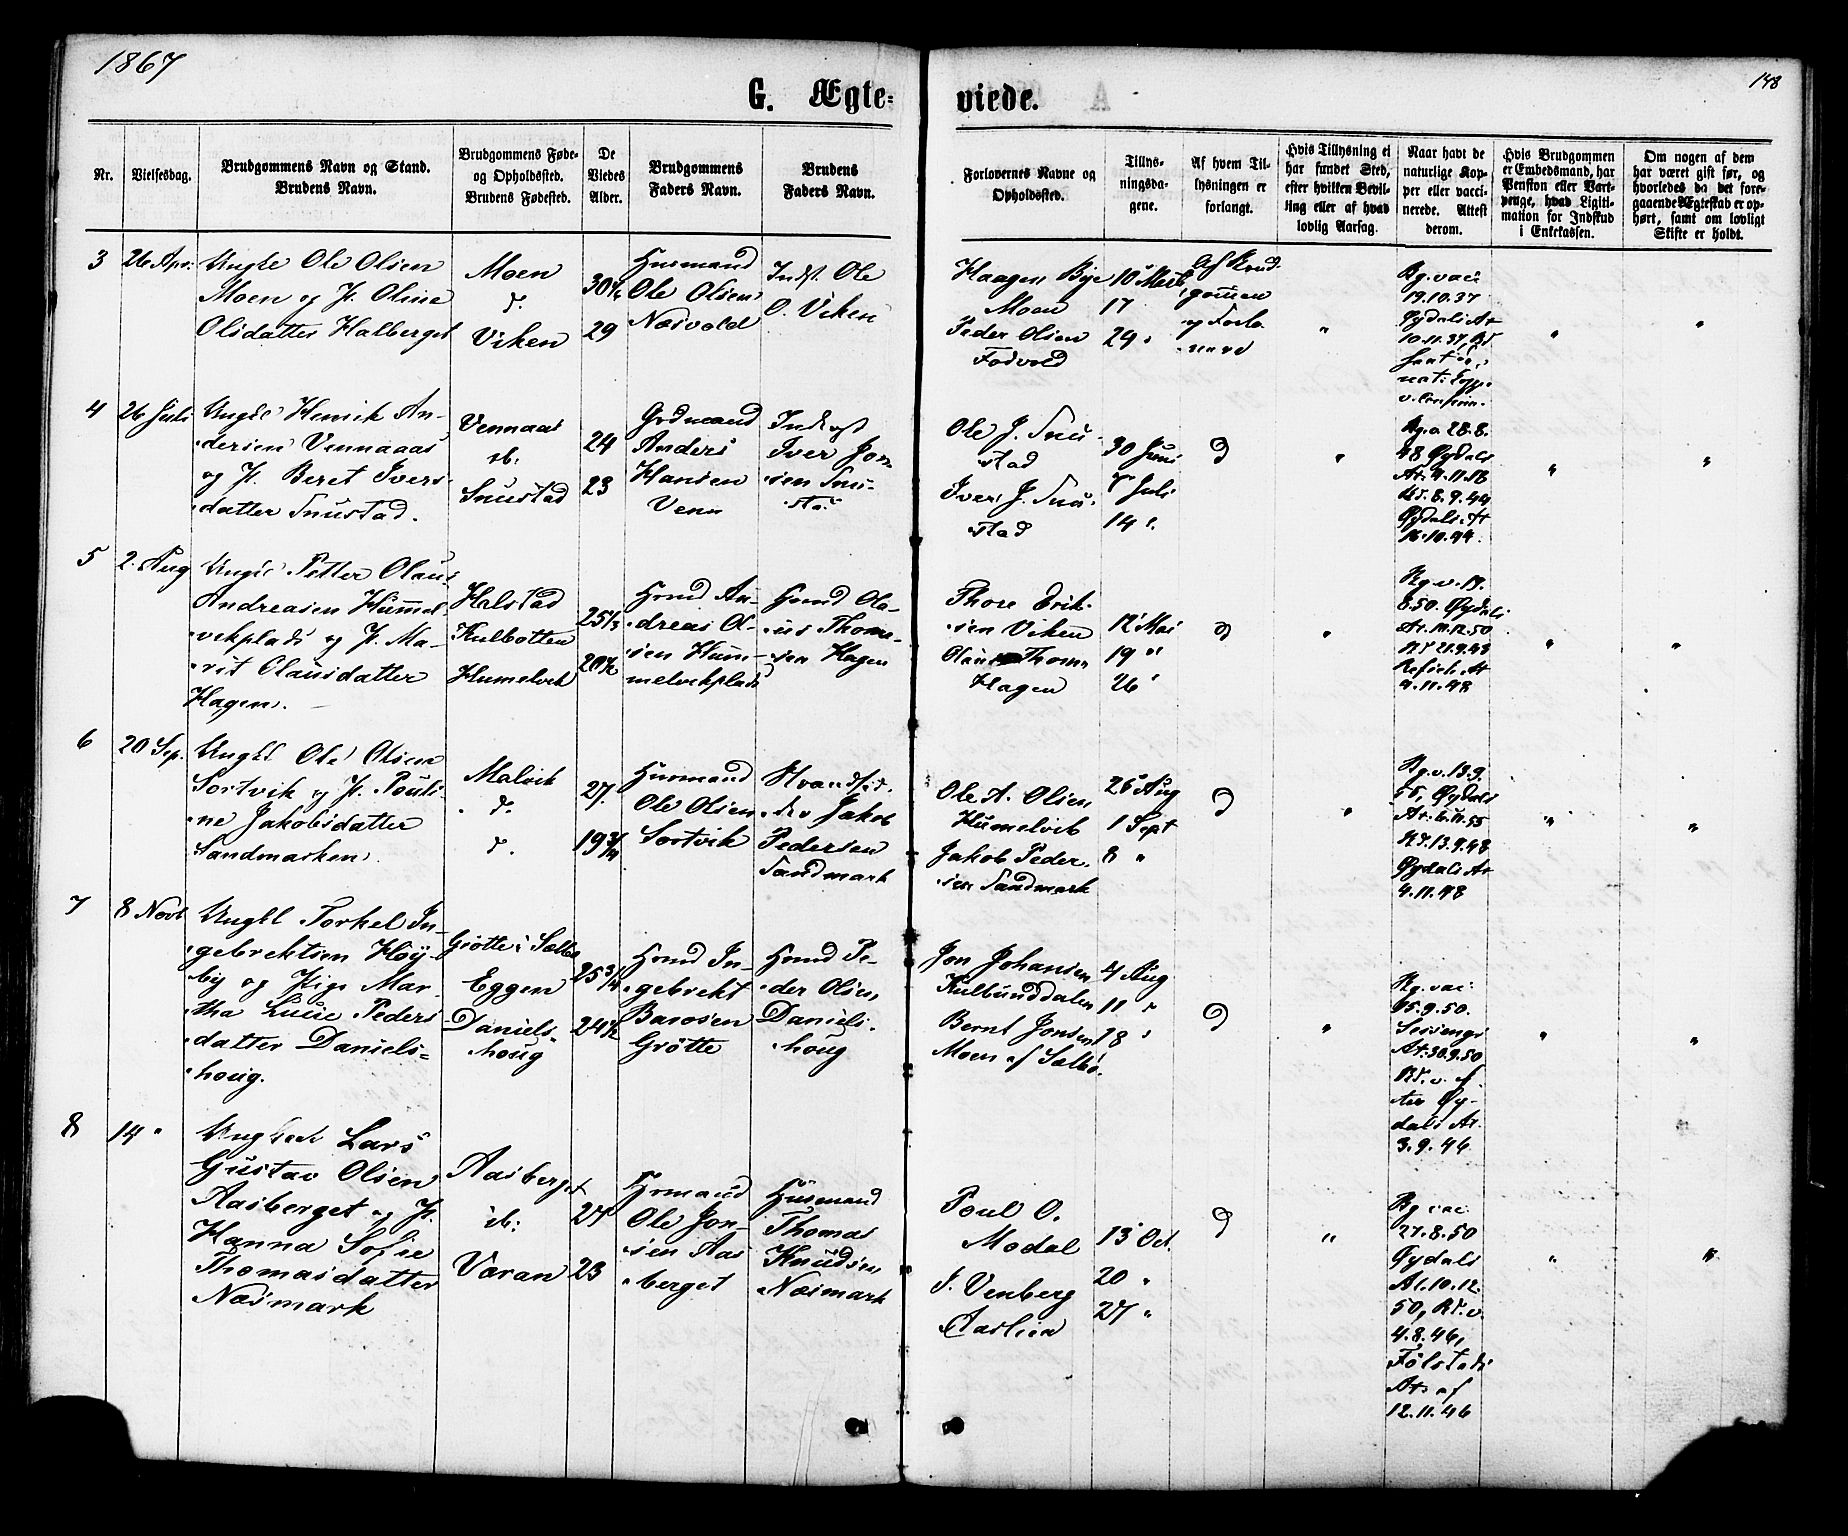 1867
148
G. Ægte-
viede.
Nr.
Vielsesdag.
Brudgommens Navn og Stand.
Brudens Navn.
Brudgommens Føde-
og Opholdssted.
Brudens Fødested.
De
Viedes
Alder.
Brudgommens
Faders Navn.
Brudens
Faders Navn.
Forlovernes Navne og
Opholdssted.
Tillys-
ningsda-
gene.
Af hvem Til-
lysningen er
forlangt.
Hvis Tillysning ei
har fundet Sted,
efter hvilken Bevil-
ling eller af hvad
lovlig Aarsag.
Naar havt de
naturlige Kop-
per eller vacci-
nerede. Attest
derom.
Hvis Brudgommen
er Embedsmand, har
Pension eller Vart-
penge, hvad Ligiti-
mation for Indskud
i Enkekassen.
Om nogen af dem
har været gift før, og
hvorledes da det fore-
gaaende Ægteskab er op-
hørt, samt om lovligt
Skifte er holdt.
3
26 Apr.
Ungk Ole Olsen
Moen og P. Oline
Olsdatter Halberget
Moen
d.
Viken
30¼
29
Husmand
Ole Olsen
Næsvold
Indst. Ole
O. Viken
Haagen Bye
Moen
Peder Olsen
Fodvold
10 Marts
17
24 "
Af Brud-
gommen
og Forlo-
verne
"
Bg. vac:
19.10.37
Øydals At
10.11.37, Bd
nat: Kopp.
v. Confirm.
"
"
4
26 Juli
Ungk Henrik An-
dersen Vennaaas
og P. Beret Ivers-
datter Snustad.
Vennaas
ib:
Snustad
24
23
Grdmand
Anders
Hansen
Venn
Inderst
Iver Jon
sen Snu-
sta.
Ole J. Snu-
stad
Iver J. Snu-
stad
30 Juni
7 Juli
14 "
d
"
Bg. v 28.8.
48 Øydals
At. 4.11.48
Bd. 8.9.44
Øydals At
16.10.44.
"
"
5
2. Aug
Ungk Petter Olaus
Andreasen Hummel-
vikplads og P. Ma-
rit Olausdatter
Hagen.
Halstad
Kulbotten
Humelvik
25⅓
20½
Hmd An-
dreas Ol-
sen Hum-
melvikplads
Hmd Ola-
us Thom-
sen Hagen
Thore Erik-
sen Viken
Olaus Thoms
Hagen
12 Mai
19 "
26 "
d
"
Bg. v. 19.
8.50. Øydals
At. 14.12.50
Bd 21.9.48
At
4.11.48
"
"
6
20 Sep.
Ungk Ole Olsen
Sortvik og P. Pouli-
ne Jakobsdatter
Sandmarken.
Malvik
d.
d.
27.
19¾
Husmand
Ole Olsen
Sortvik
Strandsid-
der Jakob
Pedersen
Sandmark
Ole A. Olsen
Humelvik
Jakob Peder-
sen Sandmark
25 Aug
1 Sept
8 "
d
"
Bg. v. 13.9.
55, Øydals
At. 6.11.55
Bd. 13.9.48
Øydals At
4.11.48
"
"
7
8 Novb
Ungkl Torkel In-
gebrektsen Høy-
by og Pige Mar-
tha Lucie Peders
datter Daniels-
houg.
Grøtte i Sælbo
Eggen
Daniels-
houg
25¾
24½
Hmd In-
gebrekt
Barosen
Grøtte
Hmd Pe-
der Olsen
Daniels-
houg
Jon Johansen
Kulbunddalen
Bernt Jonsen
Moen af Sælbo.
4 Aug
11 "
18 "
d
"
Bg. vac:
15.9.50.
At. 30.9.50
Bd. v. af
Øy-
dals At.
3.9.46
"
"
8
14 "
Ungkarl Lars
Gustav Olsen
Aasberget og P.
Hanna Sofie
Thomasdatter
Næsmark
Aasberget
ib:
Varan
27
23
Hrmand
Ole Jon-
sen Aas
berget
Husmand
Thomas
Knudsen
Næsmark
Poul O.
Modal
J. Venberg
Aaslien
13 Oct.
20 "
27 "
d
"
Bg vac:
27.8.50
Øydals
At. 10.12.
50, Bd. v.
4.8.46,
Følstads
At. af
12.11.46
"
"